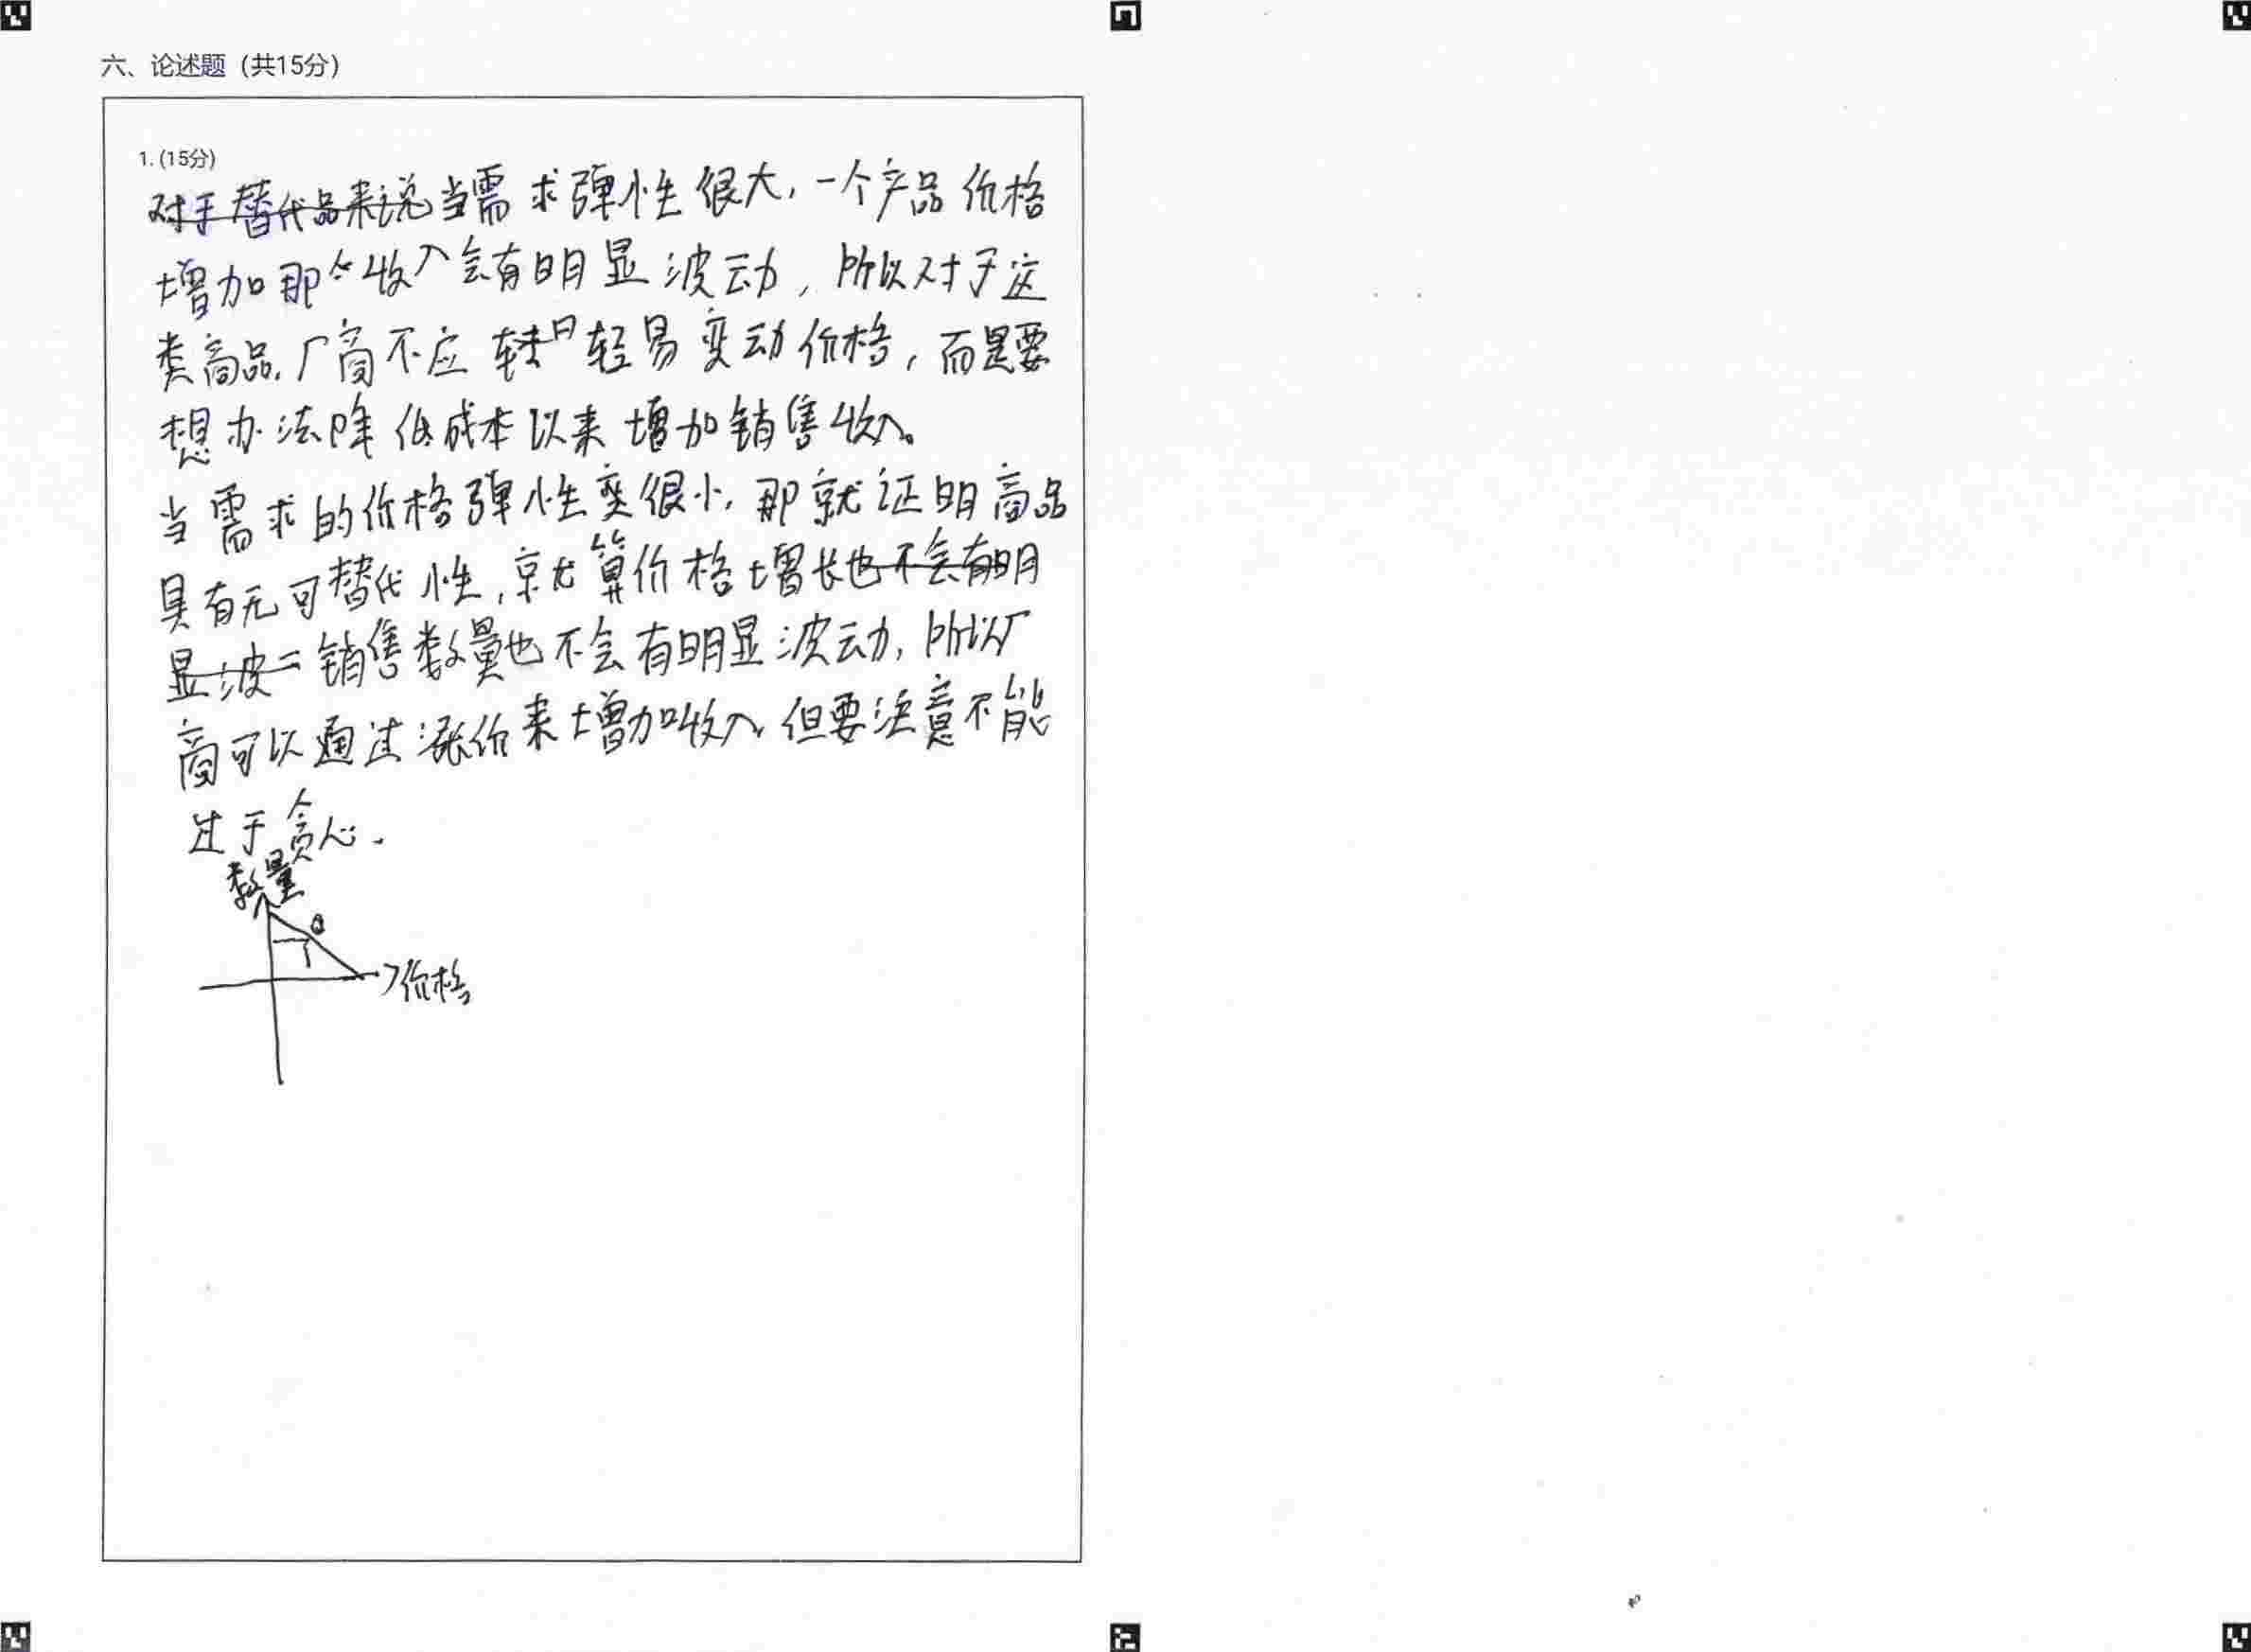 六、论述题（共15分）
1. (15分)
对于替代品来说当需求弹性很大，一个产品价格
增加那么收入会有明显波动，所以对于这
类商品，厂商不应轻易变动价格，而是要
想办法降低成本以来增加销售收入。
当需求的价格弹性变很小，那就证明商品
具有无可替代性，就算价格增长也不会有明
显波二销售数量也不会有明显波动，所以厂
商可以通过涨价来增加收入，但要注意不能
过于贪心．
数量
Q
价格